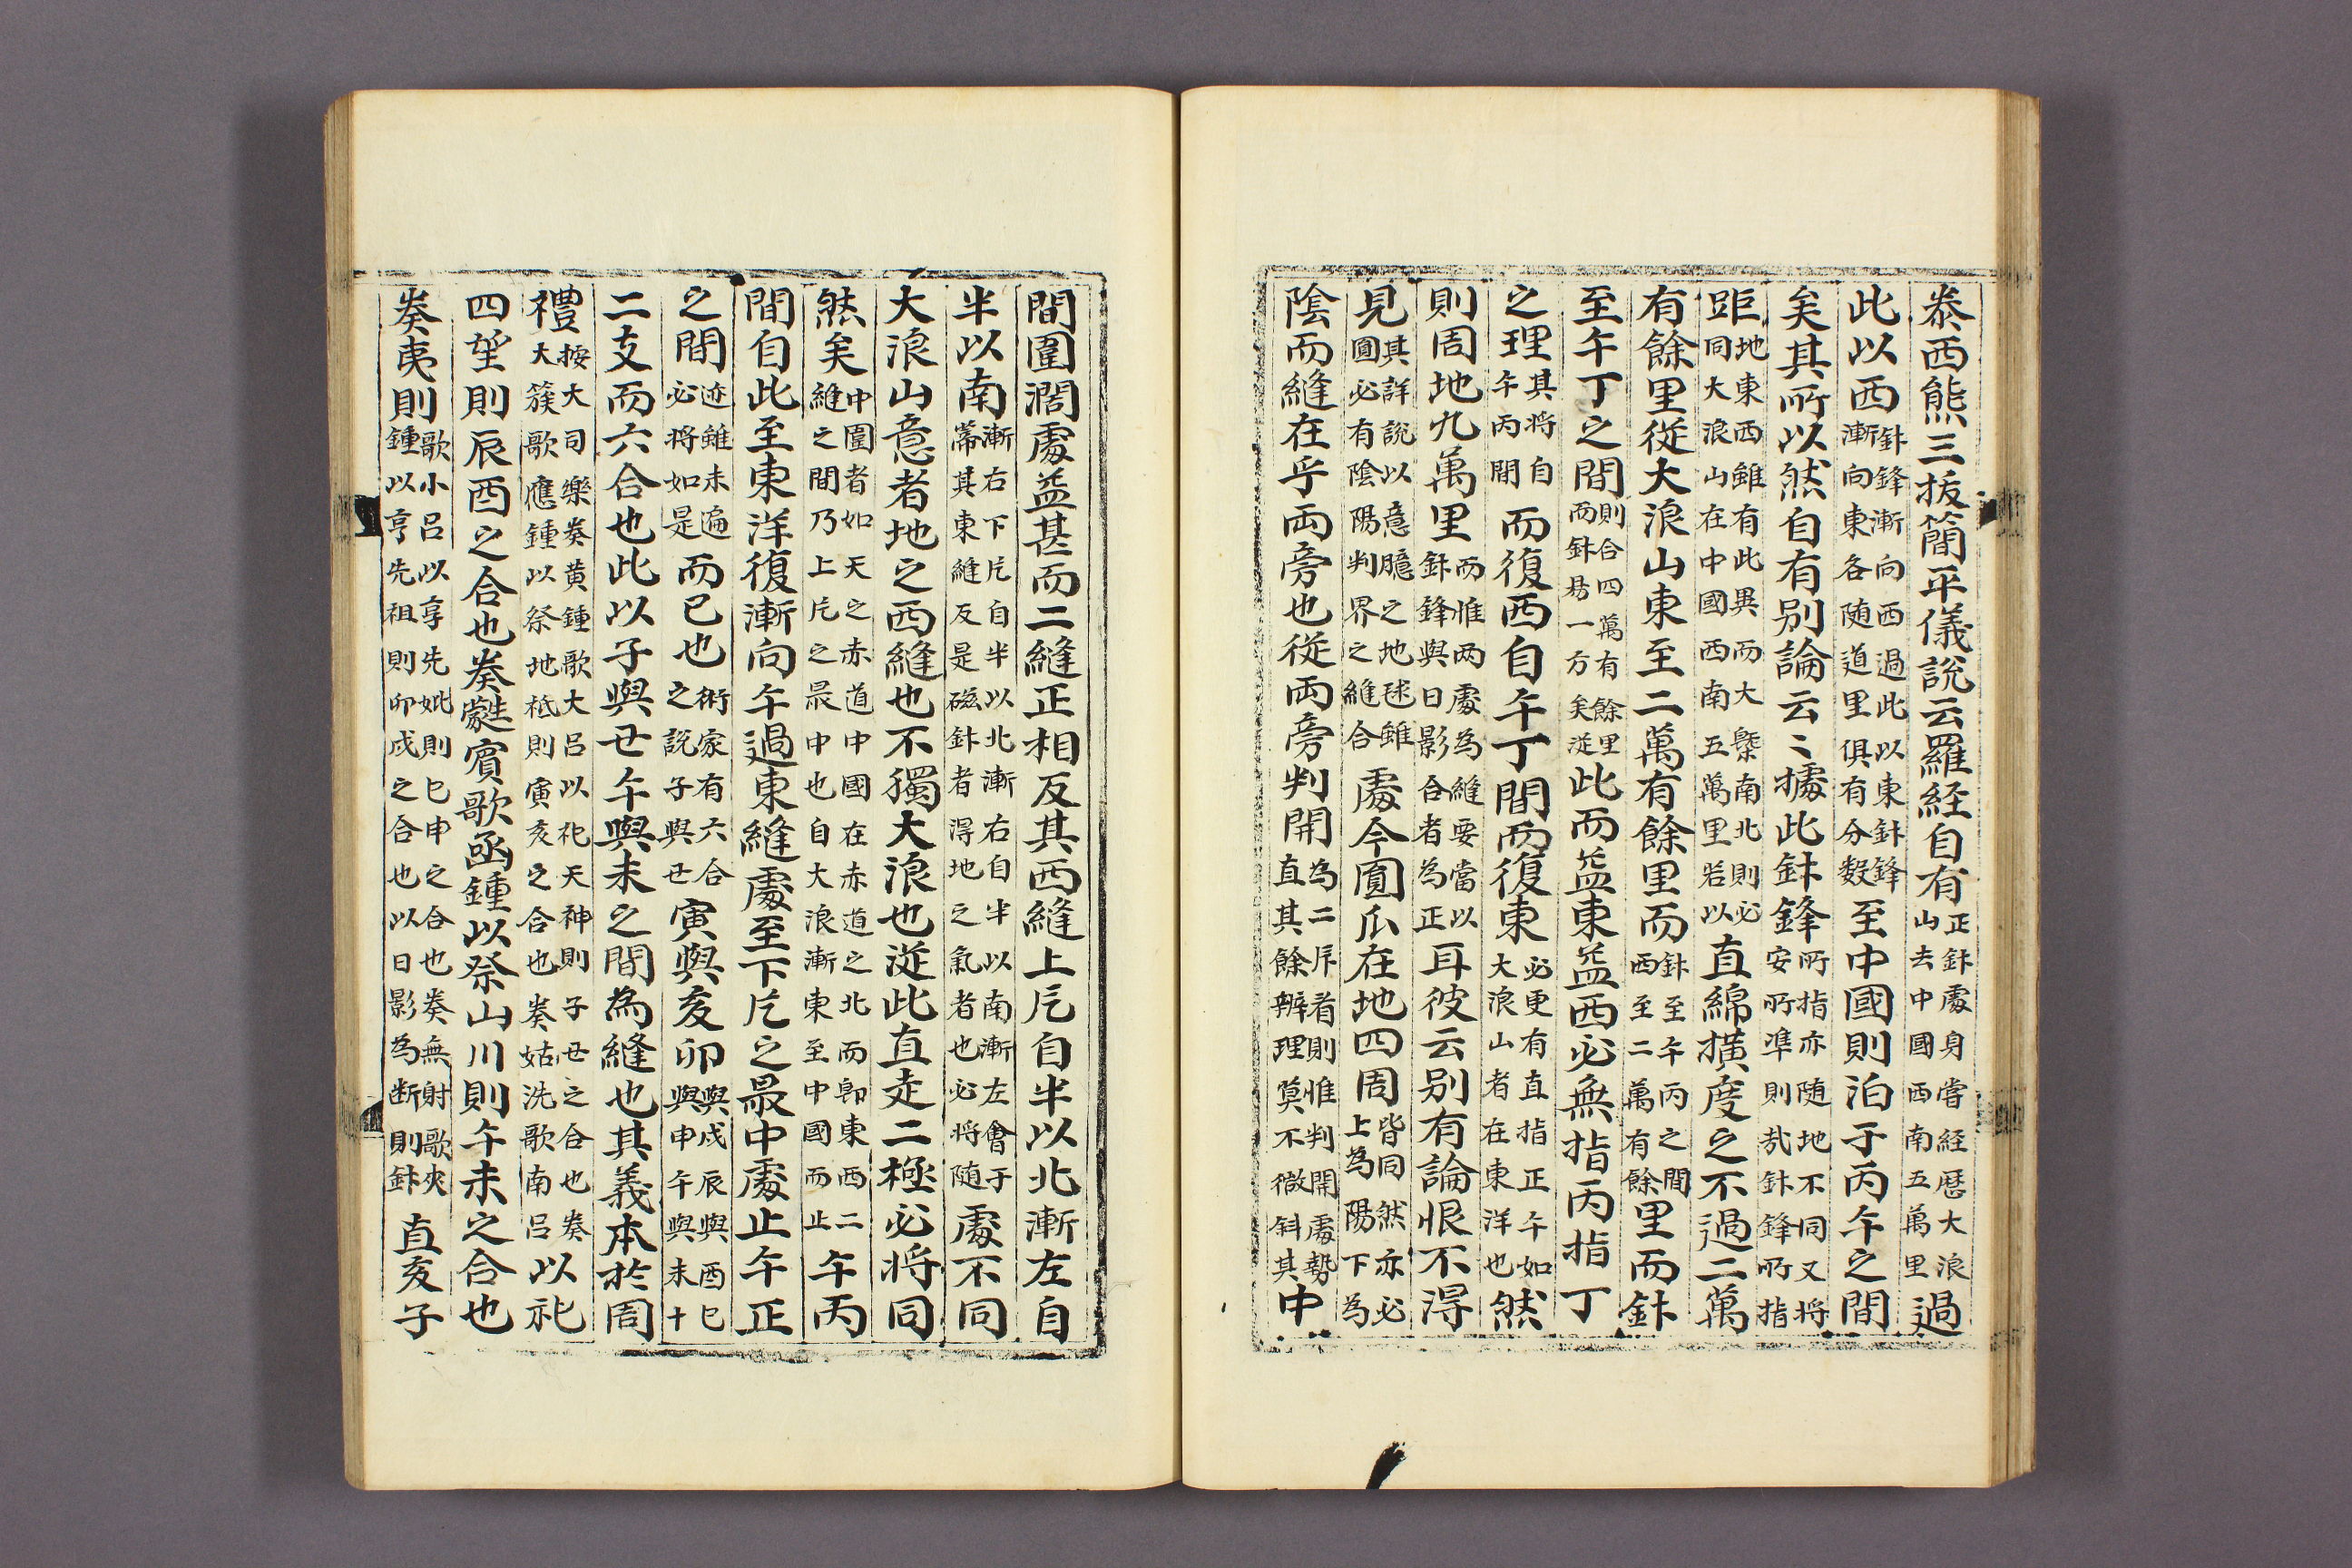 泰西熊三拔簡平儀說云羅経自有正針處身嘗経歴大浪山去中國西南五萬里過
此以西針鋒漸向西過此以東針鋒漸向東各随道里俱有分数至中國則泊于丙午之間
矣其所以然自有别論云〻據此針鋒所指亦随地不同又将安所準則㢤針鋒所指
距地東西雖有此異而大槩南北則必同大浪山在中國西南五萬里若以直綿横度之不過二萬
有餘里從大浪山東至二萬有餘里而針至午丙之間西至二萬有餘里而針
至午丁之間則合四萬有餘里而針易一方矣從此而益東益西必無指丙指丁
之理其将自午丙間而復西自午丁間而復東必更有直指正午如大浪山者在東洋也然
則周地九萬里而惟两處為縫要當以針鋒與日影合者為正耳彼云别有論恨不淂
見其詳說以意臆之地毬雖圓必有陰陽判界之縫合處今圎瓜在地四周皆同然亦必上為陽下為
陰而縫在乎両旁也従両旁判開為二片者則惟判開處勢直其餘辨理莫不微斜其中
間圍濶處益甚而二縫正相反其西縫上片自半以北漸左自
半以南漸右下片自半以北漸右自半以南漸左會于蔕其東縫反是磁針者淂地之氣者也必将随處不同
大浪山意者地之西縫也不獨大浪也従此直走二極必将同
然矣中圍者如天之赤道中國在赤道之北而卽東西二縫之間乃上片之最中也自大浪漸東至中國而止午丙
間自此至東洋復漸向午過東縫處至下片之最中處止午正
之間迹雖未遍必将如是而已也術家有六合之說子與丑寅與亥卯與戌辰與酉巳與申午與未十
二支而六合也此以子與丑午與未之間為縫也其義本於周
禮按大司樂奏黄鍾歌大呂以祀天神則子丑之合也奏大簇歌應鍾以祭地祗則寅亥之合也奏姑洗歌南呂以祀
四望則辰酉之合也奏蕤賓歌函鍾以祭山川則午未之合也
奏夷則歌小呂以享先妣則巳申之合也奏無射歌夾鍾以亨先祖則卯戌之合也以日影為断則針直亥子